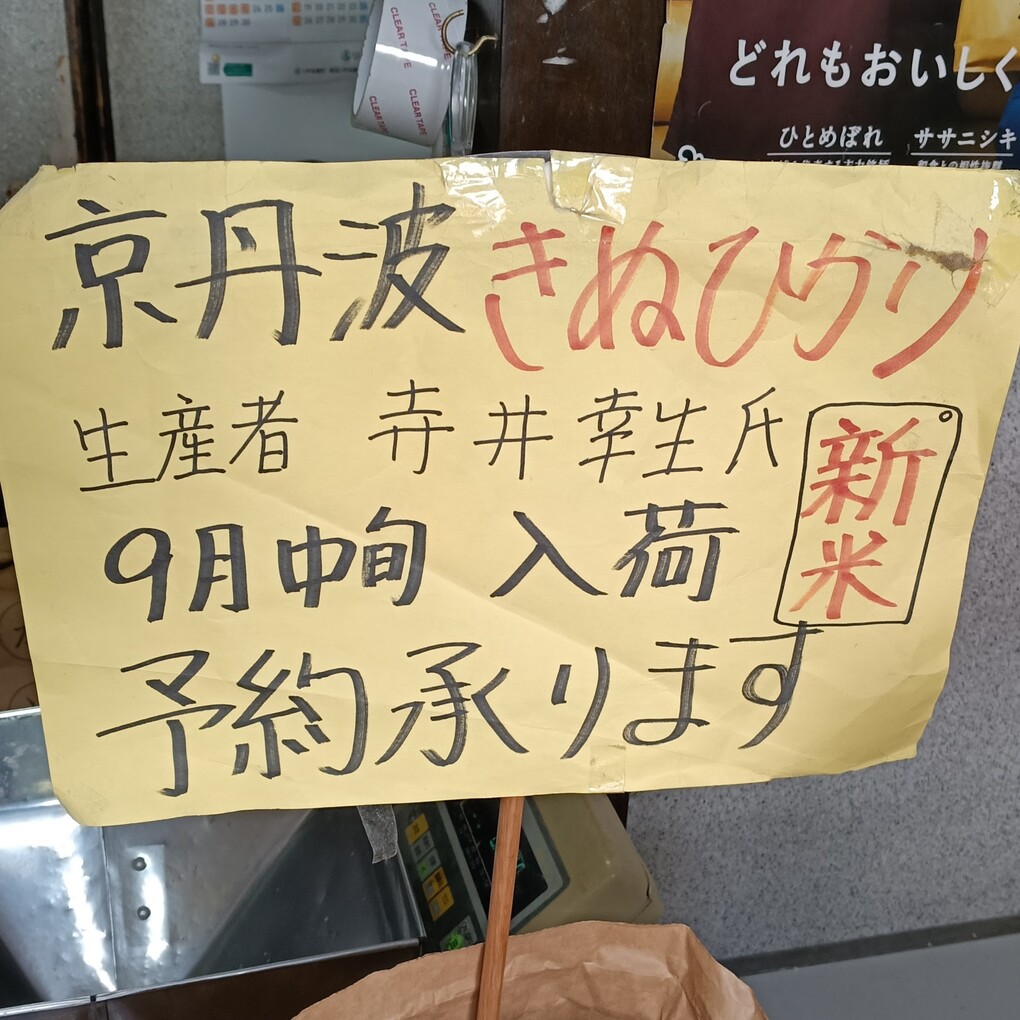 CLEAR TAPE
CLEAR TAPE
CLEAR TAPE
どれもおいしく
ひとめぼれ ササニシキ
京丹波 きぬひかり
生産者 寺井幸生氏
新米
9月中旬 入荷
予約承ります